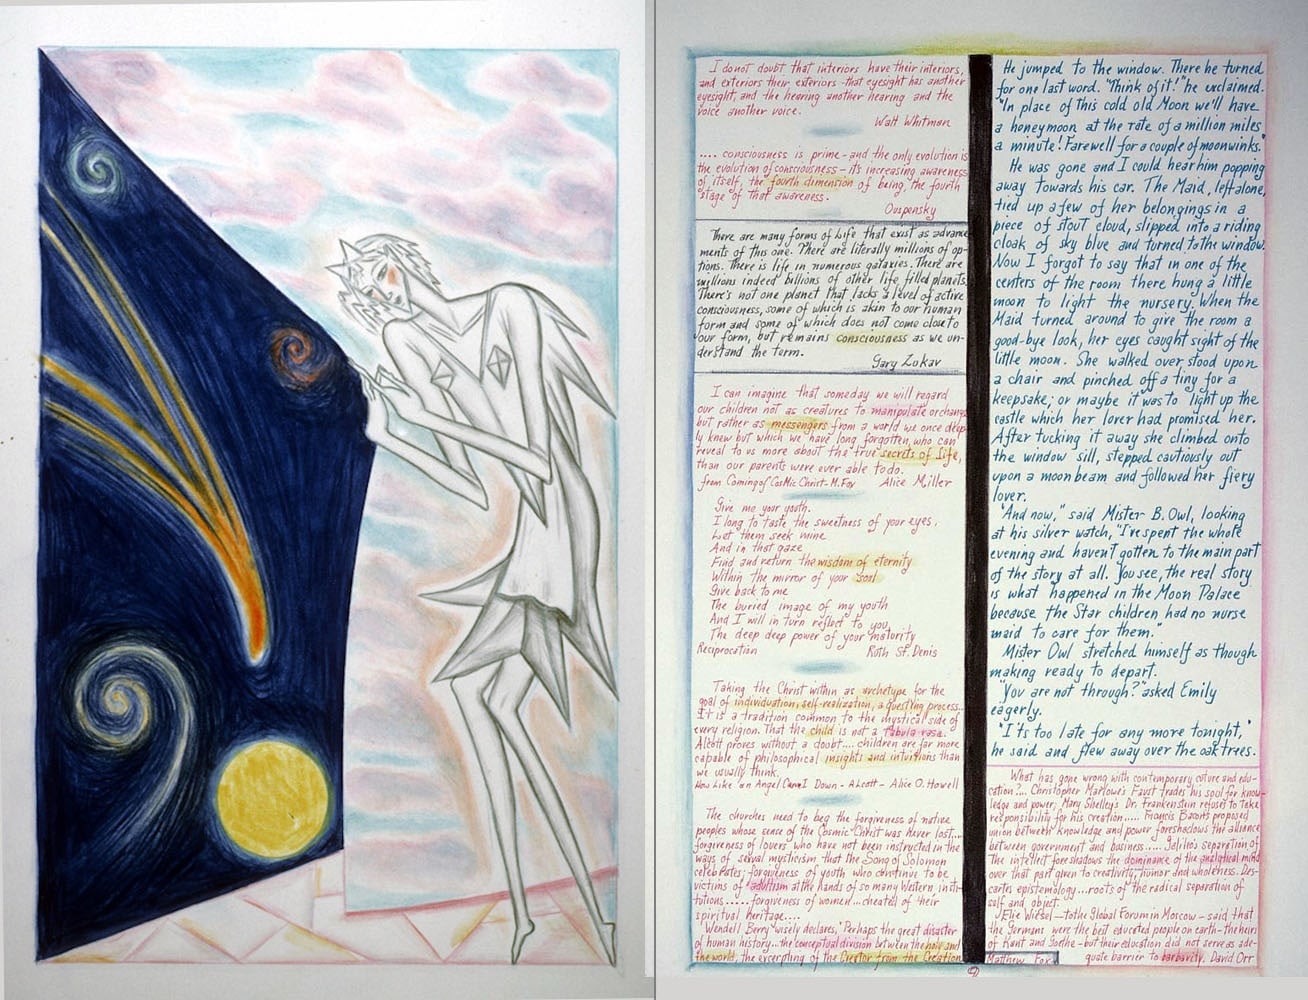 I do not doubt that interiors have their interiors,
and exteriors their exteriors - that eyesight has another
eyesight, and the hearing another hearing and the
voice another voice.
Walt Whitman
.... consciousness is prime - and the only evolution is
the evolution of consciousness - its increasing awareness
of itself, the fourth dimension of being, the fourth
stage of that awareness.
Ouspensky
There are many forms of Life that exist as advance
ments of this one. There are literally millions of op-
tions. There is life in numerous galaxies. There are
millions indeed billions of other life filled planets.
There's not one planet that lacks a level of active
consciousness, some of which is akin to our human
form and some of which does not come close to
our form, but remains consciousness as we un-
derstand the term.
Gary Zukav
I can imagine that someday we will regard
our children not as creatures to manipulate or change
but rather as messengers from a world we once deep-
ly knew but which we have long forgotten, who can
reveal to us more about the true secrets of life,
than our parents were ever able to do.
from Coming of CosMic Christ - M. Fox Alice Miller
Give me your youth.
I long to taste the sweetness of your eyes.
Let them seek mine
And in that gaze
Find and return the wisdom of eternity
Within the mirror of your soul
Give back to me
The buried image of my youth
And I will in turn reflect to you
The deep deep power of your maturity
Reciprocation Ruth St. Denis
Taking the Christ within as archetype for the
goal of individuation, self-realization, a questing process...
It is a tradition common to the mystical side of
every religion. That the child is not a tabula rasa.
Alcott proves without a doubt.... children are far more
capable of philosophical insights and intuitions than
we usually think.
How Like an Angel Came I Down - Alcott - Alice O. Howell
The churches need to beg the forgiveness of native
peoples whose sense of the Cosmic Christ was never lost...
forgiveness of lovers who have not been instructed in the
ways of sexual mysticism that the Song of Solomon
celebrates; forgiveness of youth who continue to be
victims of adultism at the hands of so many Western insti-
tutions..... forgiveness of women... cheated of their
spiritual heritage....
Wendell Berry wisely declares, "Perhaps the great disaster
of human history... the conceptual division between the holy and
the world, the excerpting of the Creator from the Creation
He jumped to the window. There he turned
for one last word. "Think of it!" he exclaimed.
"In place of this cold old Moon we'll have
a honeymoon at the rate of a million miles
a minute! Farewell for a couple of moonwinks."
He was gone and I could hear him popping
away towards his car. The Maid, left alone,
tied up a few of her belongings in a
piece of stout cloud, slipped into a riding
cloak of sky blue and turned to the window.
Now I forgot to say that in one of the
centers of the room there hung a little
moon to light the nursery. When the
Maid turned around to give the room a
good-bye look, her eyes caught sight of the
little moon. She walked over stood upon
a chair and pinched off a tiny for a
keepsake, or maybe it was to light up the
castle which her lover had promised her.
After tucking it away she climbed onto
the window sill, stepped cautiously out
upon a moonbeam and followed her fiery
lover.
"And now," said Mister B. Owl, looking
at his silver watch, "I've spent the whole
evening and haven't gotten to the main part
of the story at all. You see, the real story
is what happened in the Moon Palace
because the Star children had no nurse
maid to care for them."
Mister Owl stretched himself as though
making ready to depart.
"You are not through?" asked Emily
eagerly.
"I'ts too late for any more tonight,"
he said and flew away over the oak trees.
What has gone wrong with contemporary culture and edu-
cation?... Christopher Marlowe's Faust trades his soul for know-
ledge and power; Mary Shelley's Dr. Frankenstein refuses to take
responsibility for his creation..... Francis Bacon's proposed
union between knowledge and power foreshadows the alliance
between government and business..... Galileo's separation of
the intellect foreshadows the dominance of the analytical mind
over that part given to creativity, humor and wholeness. Des-
cartes epistemology... roots of the radical separation of
self and object.
Elie Wiesel - to the Global Forum in Moscow - said that
the Germans were the best educated people on earth - the heirs
of Kant and Goethe - but their education did not serve as ade-
Matthew Fox quate barrier to barbarity. David Orr